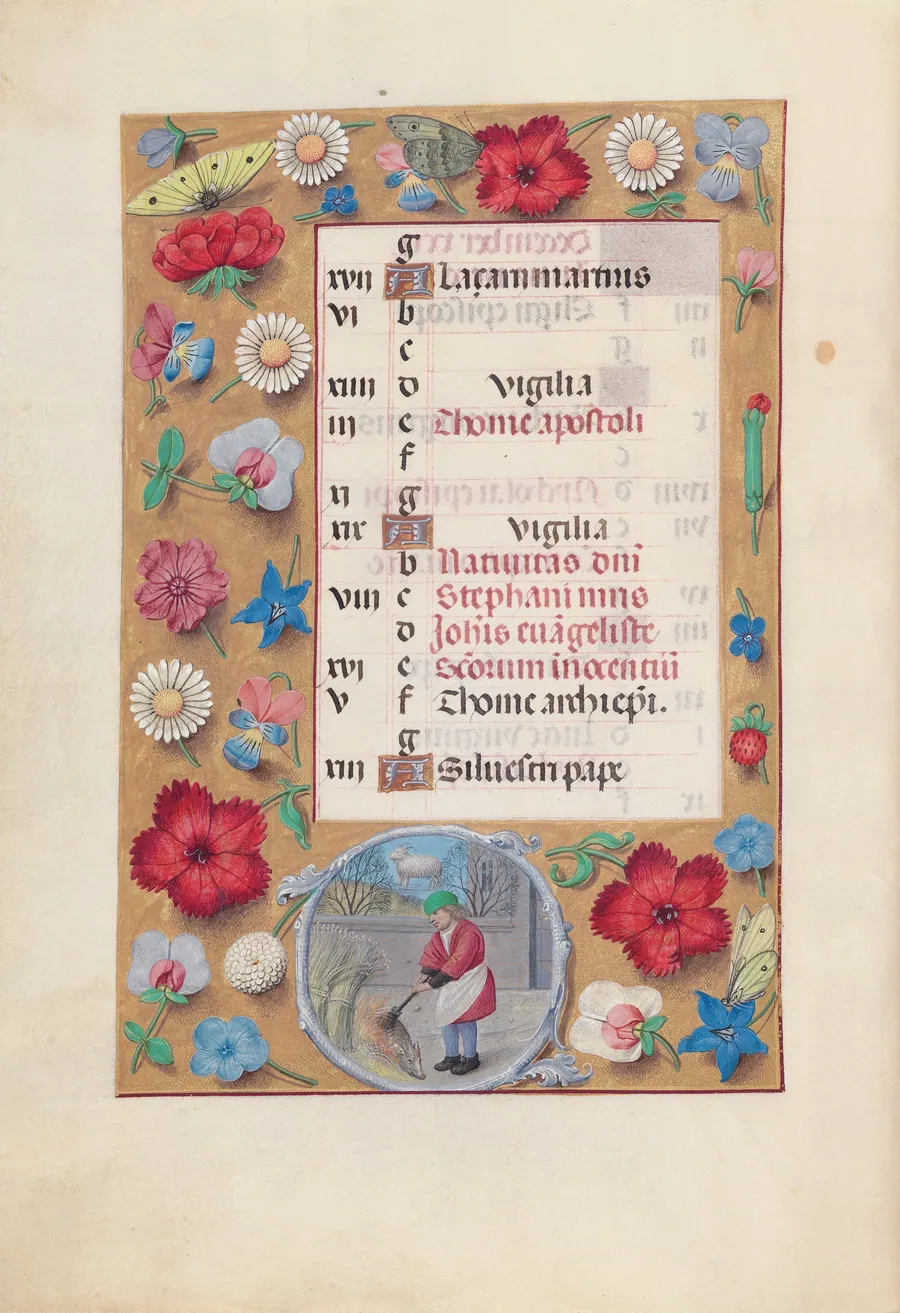 g
xvii A Laçari martiris
vi b
c
xiiii d vigilia
iii e Thome apostoli
f
xi g
xix A vigilia
b Natiuitas dnī
viii c Stephani mris
d Joh̄is euāgeliste
xvi e Scōrum inocentiū
v f Thome archiep̄i.
g
xiii A Siluestri pape